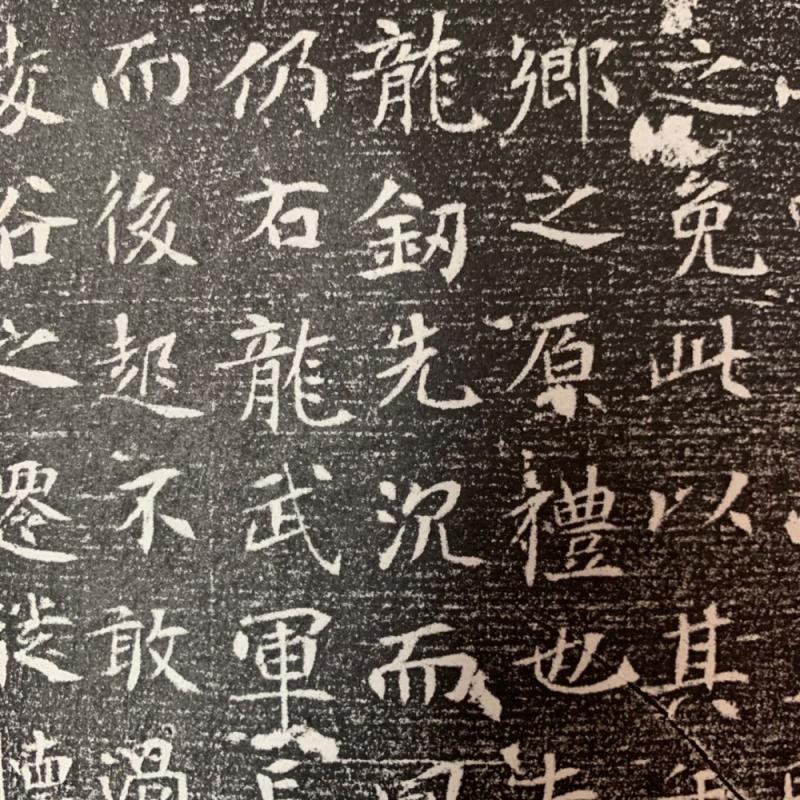 之免此以其
鄉之原禮也
龍釰先沉而同
仍右龍武軍
而後起不敢
谷之遷徙